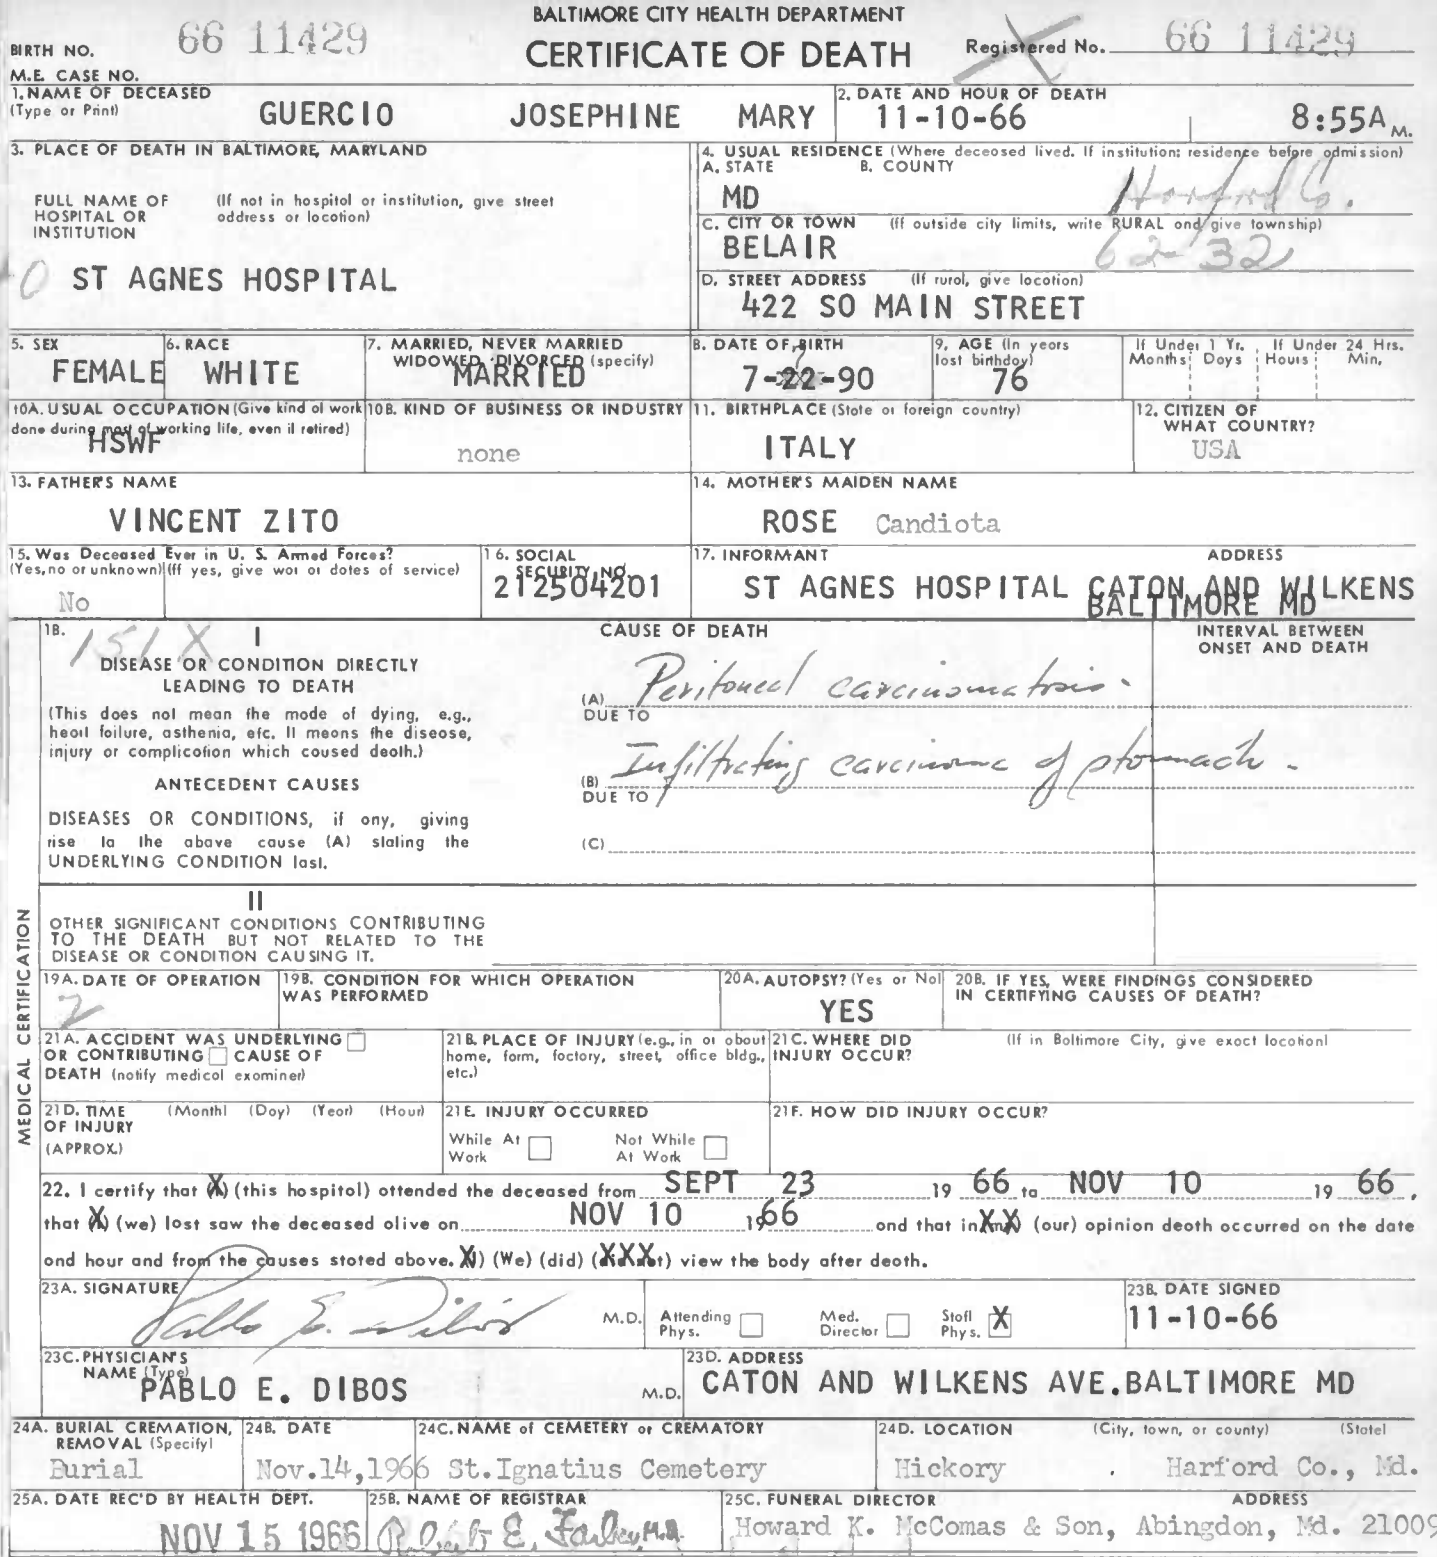 BALTIMORE CITY HEALTH DEPARTMENT
CERTIFICATE OF DEATH
BIRTH NO. 66 11429
Registered No. 66 11429
M.E. CASE NO.
1. NAME OF DECEASED (Type or Print) GUERCIO JOSEPHINE MARY
2. DATE AND HOUR OF DEATH 11-10-66 8:55A M.
3. PLACE OF DEATH IN BALTIMORE, MARYLAND
FULL NAME OF HOSPITAL OR INSTITUTION (If not in hospital or institution, give street address or location)
ST AGNES HOSPITAL
4. USUAL RESIDENCE (Where deceased lived. If institution: residence before admission)
A. STATE B. COUNTY
MD Harford Co.
C. CITY OR TOWN (If outside city limits, write RURAL and give township)
BELAIR 62-32
D. STREET ADDRESS (If rural, give location)
422 SO MAIN STREET
5. SEX FEMALE
6. RACE WHITE
7. MARRIED, NEVER MARRIED WIDOWED, DIVORCED (specify) MARRIED
8. DATE OF BIRTH 7-22-90
9. AGE (In years last birthday) 76
If Under 1 Yr. Months Days
If Under 24 Hrs. Hours Min.
10A. USUAL OCCUPATION (Give kind of work done during most of working life, even if retired) HSWF
10B. KIND OF BUSINESS OR INDUSTRY none
11. BIRTHPLACE (State or foreign country) ITALY
12. CITIZEN OF WHAT COUNTRY? USA
13. FATHER'S NAME VINCENT ZITO
14. MOTHER'S MAIDEN NAME ROSE Candiota
15. Was Deceased Ever in U. S. Armed Forces? (Yes, no or unknown) (If yes, give war or dates of service) No
16. SOCIAL SECURITY NO. 212504201
17. INFORMANT ADDRESS
ST AGNES HOSPITAL CATON AND WILKENS
BALTIMORE MD
18. 151X I
CAUSE OF DEATH
INTERVAL BETWEEN ONSET AND DEATH
DISEASE OR CONDITION DIRECTLY LEADING TO DEATH
(This does not mean the mode of dying, e.g., heart failure, asthenia, etc. It means the disease, injury or complication which caused death.)
(A) Peritoneal carcinomatosis.
DUE TO
ANTECEDENT CAUSES
(B) Infiltrating carcinoma of stomach.
DUE TO
DISEASES OR CONDITIONS, if any, giving rise to the above cause (A) stating the UNDERLYING CONDITION last.
(C)
II
OTHER SIGNIFICANT CONDITIONS CONTRIBUTING TO THE DEATH BUT NOT RELATED TO THE DISEASE OR CONDITION CAUSING IT.
MEDICAL CERTIFICATION
19A. DATE OF OPERATION 2
19B. CONDITION FOR WHICH OPERATION WAS PERFORMED
20A. AUTOPSY? (Yes or No) YES
20B. IF YES, WERE FINDINGS CONSIDERED IN CERTIFYING CAUSES OF DEATH?
21A. ACCIDENT WAS UNDERLYING OR CONTRIBUTING CAUSE OF DEATH (notify medical examiner)
21B. PLACE OF INJURY (e.g., in or about home, farm, factory, street, office bldg., etc.)
21C. WHERE DID INJURY OCCUR? (If in Baltimore City, give exact location)
21D. TIME OF INJURY (APPROX.) (Month) (Day) (Year) (Hour)
21E. INJURY OCCURRED
While At Work Not While At Work
21F. HOW DID INJURY OCCUR?
22. I certify that (X) (this hospital) attended the deceased from SEPT 23 19 66 to NOV 10 19 66,
that (X) (we) last saw the deceased alive on NOV 10 1966 and that in XX (our) opinion death occurred on the date
and hour and from the causes stated above. X) (We) (did) (XXXt) view the body after death.
23A. SIGNATURE Pablo E. Dibós M.D.
Attending Phys. Med. Director Staff Phys. X
23B. DATE SIGNED 11-10-66
23C. PHYSICIAN'S NAME (Type) PABLO E. DIBOS M.D.
23D. ADDRESS CATON AND WILKENS AVE.BALTIMORE MD
24A. BURIAL CREMATION, REMOVAL (Specify) Burial
24B. DATE Nov.14,1966
24C. NAME of CEMETERY or CREMATORY St.Ignatius Cemetery
24D. LOCATION (City, town, or county) (State)
Hickory . Harford Co., Md.
25A. DATE REC'D BY HEALTH DEPT. NOV 15 1966
25B. NAME OF REGISTRAR Robert E. Farber, M.D.
25C. FUNERAL DIRECTOR ADDRESS
Howard K. McComas & Son, Abingdon, Md. 21009